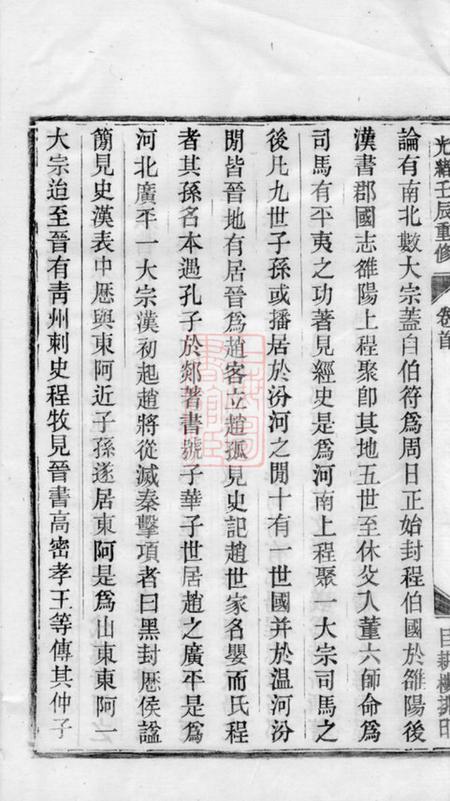 光緒壬辰重修
卷首
論有南北數大宗蓋自伯符爲周日正始封程伯國於雒陽後
漢書郡國志雒陽上程聚卽其地五世至休父入董六師命爲
司馬有平夷之功著見經史是爲河南上程聚一大宗司馬之
後凡九世子孫或播居於汾河之閒十有一世國并於温河汾
閒皆晉地有居晉爲趙客立趙孤見史記趙世家名嬰而氏程
者其孫名本遇孔子於郯著書號子華子世居趙之廣平是爲
河北廣平一大宗漢初起趙將從滅秦擊項者曰黑封厯侯諡
簡見史漢表中厯與東阿近子孫遂居東阿是爲山東東阿一
大宗迨至晉有靑州刺史程牧見晉書高密孝王等傳其仲子